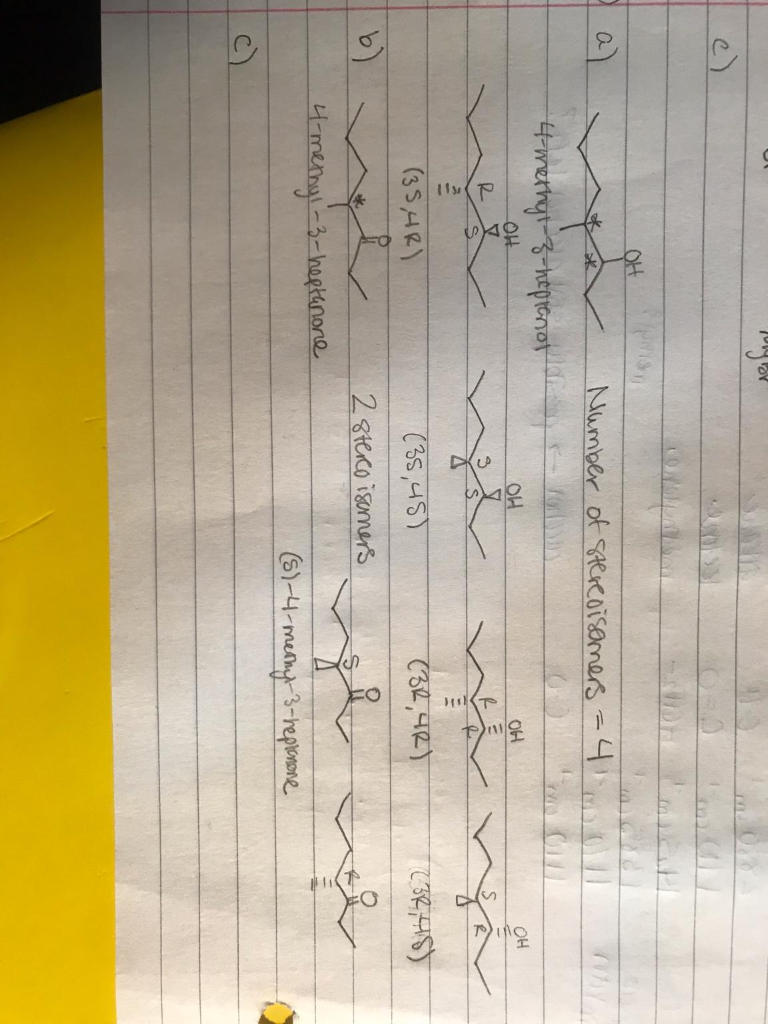 e)
a) OH * * Number of stereoisomers = 4
4-methyl-3-heptanol
OH OH OH OH
R S S S R R S R
(3S,4R) (3S,4S) (3R,4R) (3R,4S)
b) O * 2 stereoisomers S O R O
4-methyl-3-heptanone (S)-4-methyl-3-heptanone
c)